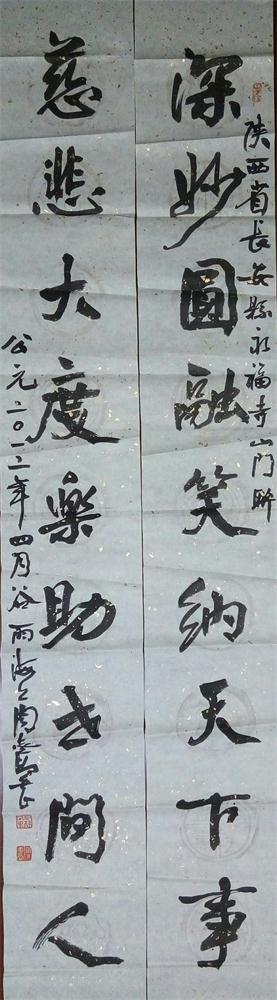 陕西省長安縣永福寺山門聯
深妙圓融笑納天下事
慈悲大度樂助世間人
公元二〇一二年四月谷雨海上周